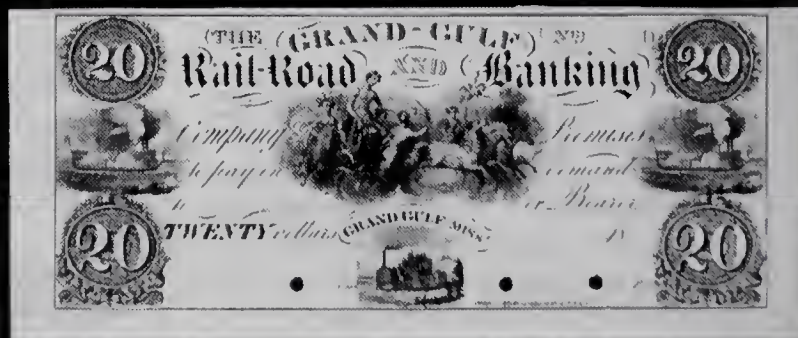 20 THE GRAND-GULF No D 20
Rail-Road AND Banking
Company Promises
to pay on demand
to or Bearer
TWENTY dollars GRAND GULF MISS 18
20 20